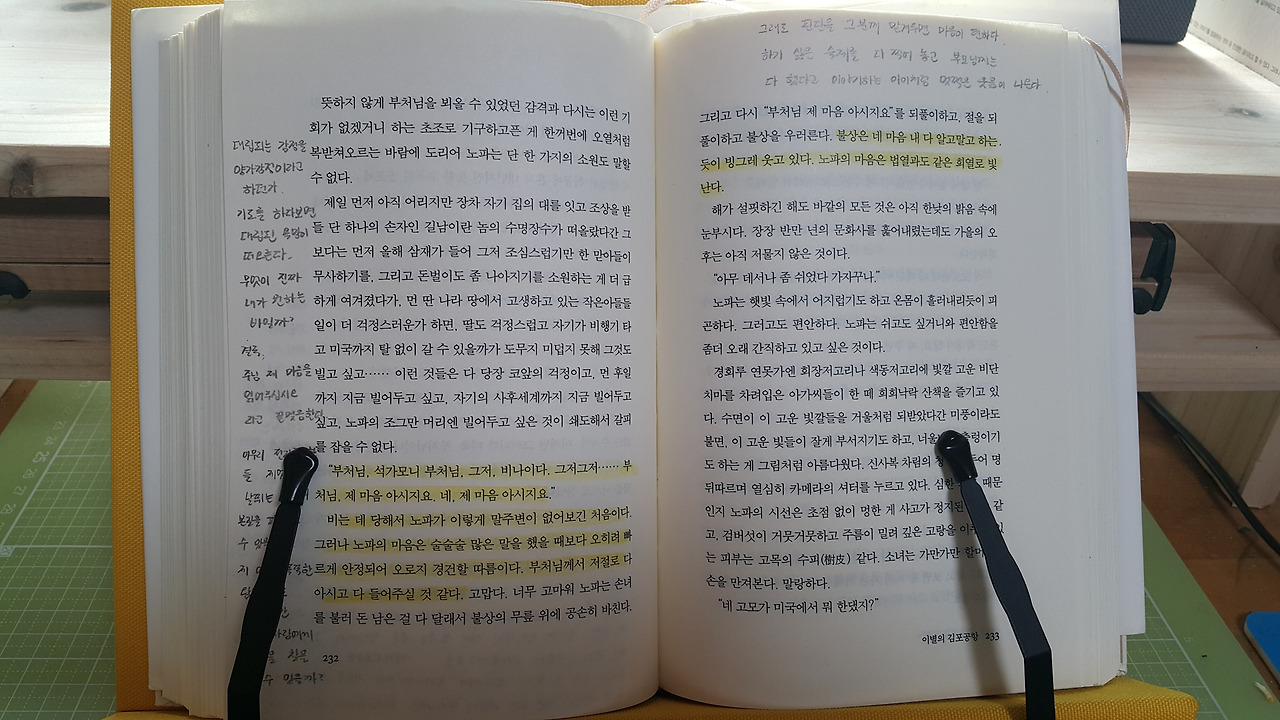 뜻하지 않게 부처님을 뵈올 수 있었던 감격과 다시는 이런 기
회가 없겠거니 하는 초조로 기구하고픈 게 한꺼번에 오열처럼
복받쳐오르는 바람에 도리어 노파는 단 한 가지의 소원도 말할
수 없다.
제일 먼저 아직 어리지만 장차 자기 집의 대를 잇고 조상을 받
들 단 하나의 손자인 길남이란 놈의 수명장수가 떠올랐다간 그
보다는 먼저 올해 삼재가 들어 그저 조심스럽기만 한 맏아들이
무사하기를, 그리고 돈벌이도 좀 나아지기를 소원하는 게 더 급
하게 여겨졌다가, 먼 딴 나라 땅에서 고생하고 있는 작은아들들
일이 더 걱정스러운가 하면, 딸도 걱정스럽고 자기가 비행기 타
고 미국까지 탈 없이 갈 수 있을까가 도무지 미덥지 못해 그것도
빌고 싶고…… 이런 것들은 다 당장 코앞의 걱정이고, 먼 후일
까지 지금 빌어두고 싶고, 자기의 사후세계까지 지금 빌어두고
싶고, 노파의 조그만 머리엔 빌어두고 싶은 것이 쇄도해서 갈피
를 잡을 수 없다.
“부처님, 석가모니 부처님, 그저, 비나이다. 그저그저…… 부
처님, 제 마음 아시지요. 네, 제 마음 아시지요.”
비는 데 당해서 노파가 이렇게 말주변이 없어보긴 처음이다.
그러나 노파의 마음은 술술술 많은 말을 했을 때보다 오히려 빠
르게 안정되어 오로지 경건할 따름이다. 부처님께서 저절로 다
아시고 다 들어주실 것 같다. 고맙다. 너무 고마워 노파는 손녀
를 불러 돈 남은 걸 다 달래서 불상의 무릎 위에 공손히 바친다.
232
대립되는 감정을
양가감정이라고
하던가.
기도를 하다보면
대립된 욕망이
떠오른다.
무엇이 진짜
내가 원하는
바일까?
결국,
주님 제 마음을
읽어주십시오
라고
그러로 판단을 그분께 맡겨두면 마음이 편하다.
하기 싫은 숙제를 다 찍어 놓고 부모님께는
다 했다고 이야기하는 아이처럼 멋쩍은 웃음이 나온다.
그리고 다시 “부처님 제 마음 아시지요”를 되풀이하고, 절을 되
풀이하고 불상을 우러른다. 불상은 네 마음 내 다 알고말고 하는
듯이 빙그레 웃고 있다. 노파의 마음은 법열과도 같은 희열로 빛
난다.
해가 설핏하긴 해도 바깥의 모든 것은 아직 한낮의 밝음 속에
눈부시다. 장장 반만 년의 문화사를 훑어내렸는데도 가을의 오
후는 아직 저물지 않은 것이다.
“아무 데서나 좀 쉬었다 가자꾸나.”
노파는 햇빛 속에서 어지럽기도 하고 온몸이 흘러내리듯이 피
곤하다. 그러고도 편안하다. 노파는 쉬고도 싶거니와 편안함을
좀더 오래 간직하고 있고 싶은 것이다.
경회루 연못가엔 회장저고리나 색동저고리에 빛깔 고운 비단
치마를 차려입은 아가씨들이 한 때 희희낙락 산책을 즐기고 있
다. 수면이 이 고운 빛깔들을 거울처럼 되받았다간 미풍이라도
불면, 이 고운 빛들이 잘게 부서지기도 하고,
도 하는 게 그림처럼 아름다웠다. 신사복 차림의
뒤따르며 열심히 카메라의 셔터를 누르고 있다. 때문
인지 노파의 시선은 초점 없이 멍한 게 사고가 같
고, 검버섯이 거뭇거뭇하고 주름이 밀려 깊은 고랑을
는 피부는 고목의 수피(樹皮) 같다. 소녀는 가만가만
손을 만져본다. 말랑하다.
“네 고모가 미국에서 뭐 한댔지?”
이별의 김포공항 233